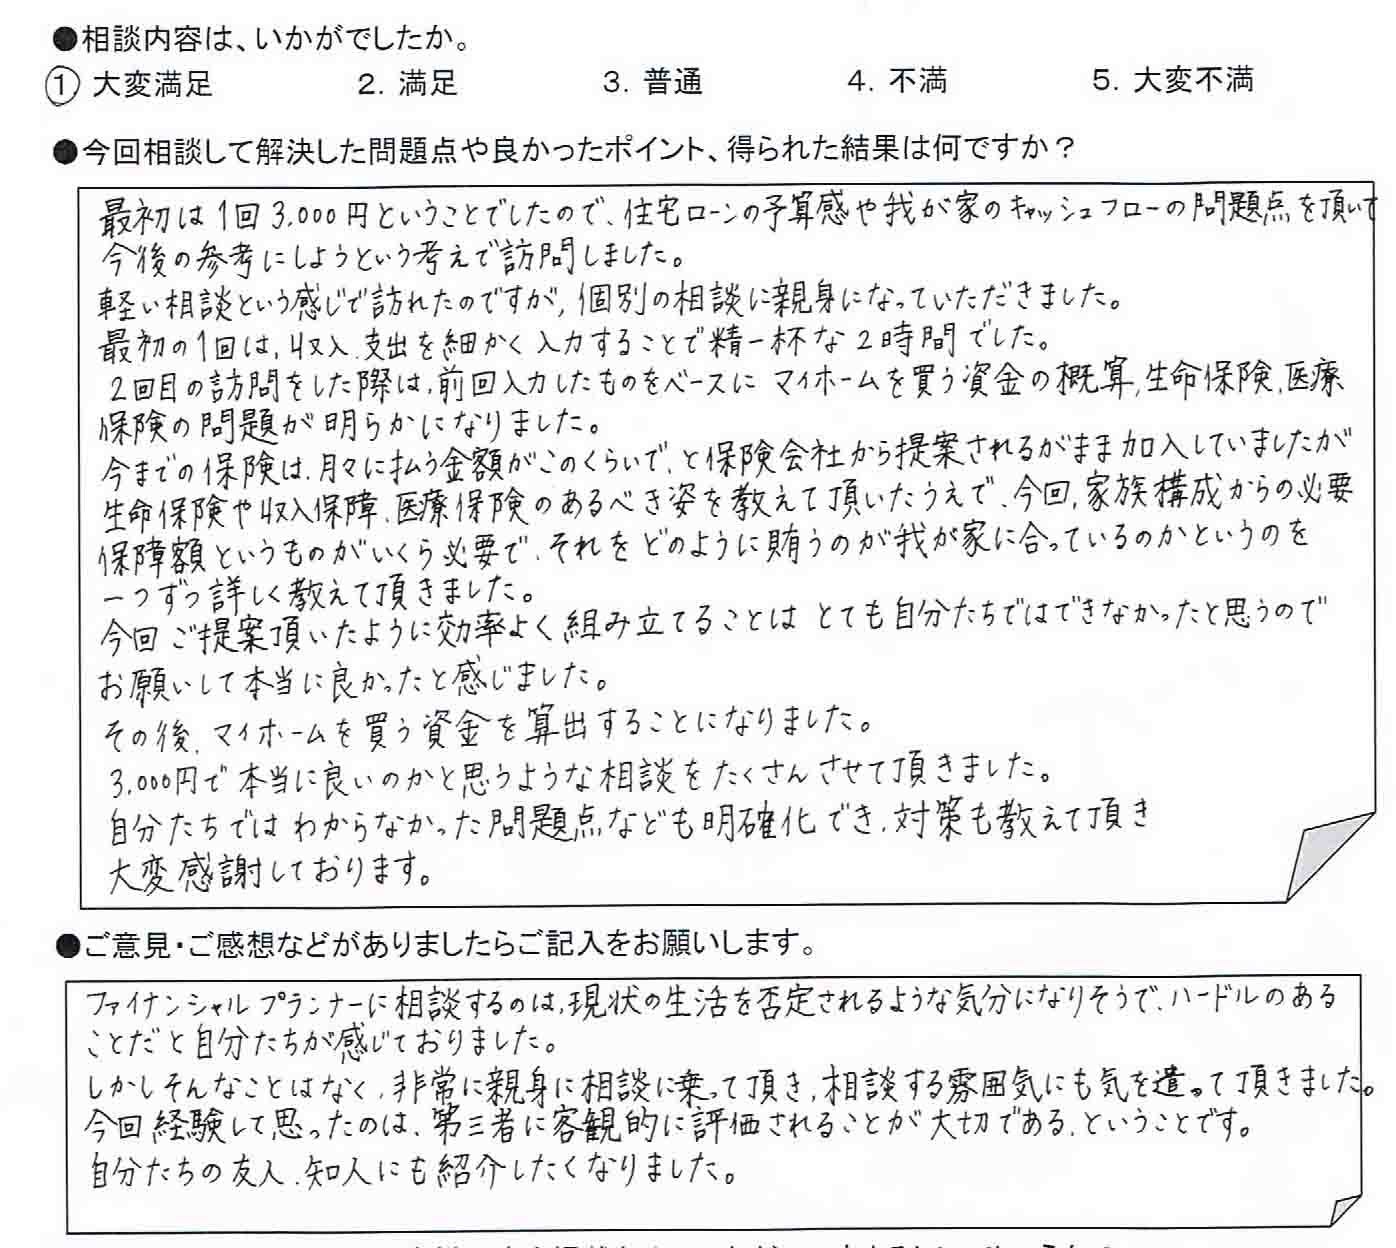 ●相談内容は、いかがでしたか。
① 大変満足　2. 満足　3. 普通　4. 不満　5. 大変不満
●今回相談して解決した問題点や良かったポイント、得られた結果は何ですか？
最初は1回3,000円ということでしたので、住宅ローンの予算感や我が家のキャッシュフローの問題点を頂いて
今後の参考にしようという考えで訪問しました。
軽い相談という感じで訪れたのですが、個別の相談に親身になっていただきました。
最初の1回は、収入、支出を細かく入力することで精一杯な2時間でした。
2回目の訪問をした際は、前回入力したものをベースにマイホームを買う資金の概算、生命保険、医療
保険の問題が明らかになりました。
今までの保険は、月々に払う金額がこのくらいで、と保険会社から提案されるがまま加入していましたが
生命保険や収入保障、医療保険のあるべき姿を教えて頂いたうえで、今回、家族構成からの必要
保障額というものがいくら必要で、それをどのように賄うのが我が家に合っているのかというのを
一つずつ詳しく教えて頂きました。
今回ご提案頂いたように効率よく組み立てることはとても自分たちではできなかったと思うので
お願いして本当に良かったと感じました。
その後、マイホームを買う資金を算出することになりました。
3,000円で本当に良いのかと思うような相談をたくさんさせて頂きました。
自分たちではわからなかった問題点なども明確化でき、対策も教えて頂き
大変感謝しております。
●ご意見・ご感想などがありましたらご記入をお願いします。
ファイナンシャルプランナーに相談するのは、現状の生活を否定されるような気分になりそうで、ハードルのある
ことだと自分たちが感じておりました。
しかしそんなことはなく、非常に親身に相談に乗って頂き、相談する雰囲気にも気を遣って頂きました。
今回経験して思ったのは、第三者に客観的に評価されることが大切である、ということです。
自分たちの友人、知人にも紹介したくなりました。